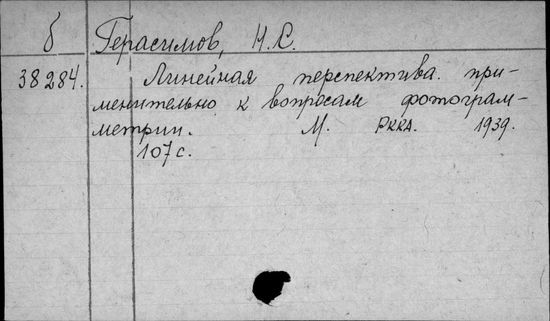 б Герасимов, Н.С.
38284. Линейная перспектива при-
менительно к вопросам фотограм-
метрии. М. РККА. 1939.
107 с.